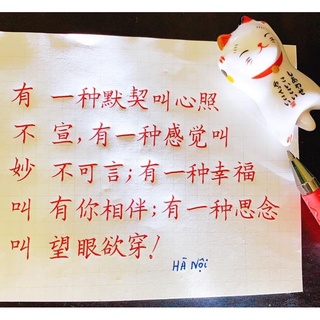 有 一种默契叫心照
不 宣,有一种感觉叫
妙 不可言;有一种幸福
叫 有你相伴;有一种思念
叫 望眼欲穿!
HÀ Nội